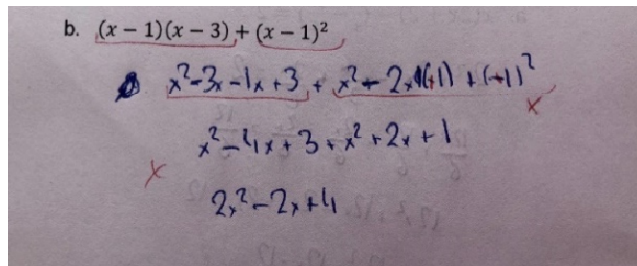 b. (x – 1)(x – 3) + (x – 1)²
x²-3x-1x+3 + x²-2x(-1) + (-1)²
x²-4x+3+x²+2x+1
2x²-2x+4